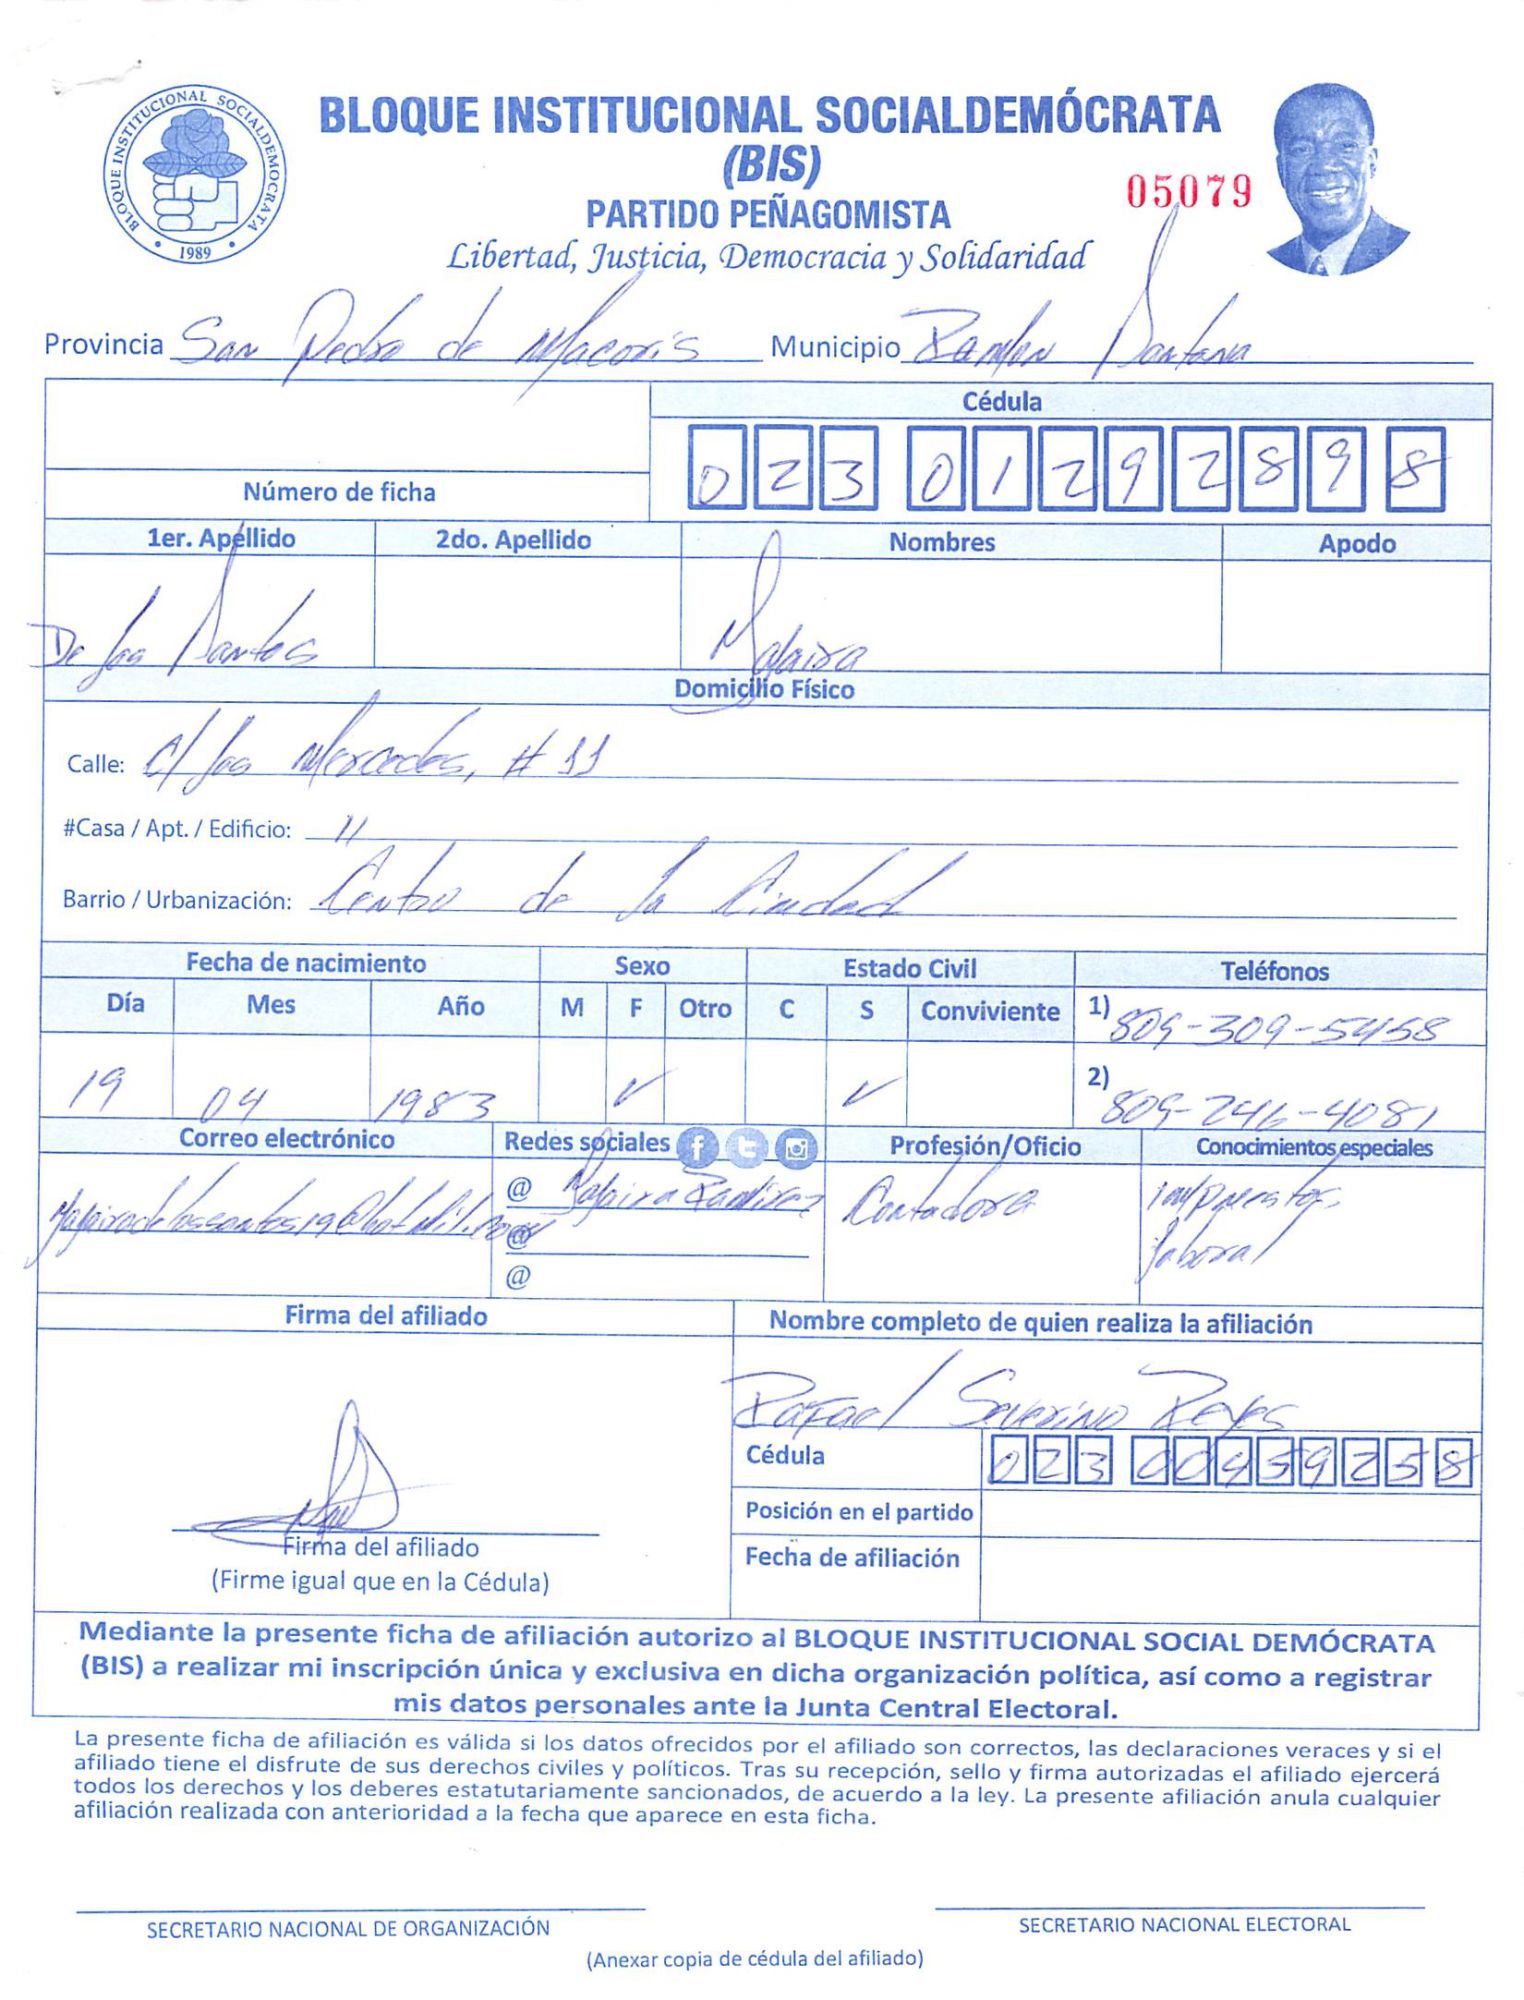 BLOQUE INSTITUCIONAL SOCIALDEMOCRATA
1989
BLOQUE INSTITUCIONAL SOCIALDEMÓCRATA
(BIS)
05079
PARTIDO PEÑAGOMISTA
Libertad, Justicia, Democracia y Solidaridad
Provincia San Pedro de Macorís Municipio Ramón Santana
Cédula
023 0129289 8
Número de ficha
1er. Apellido 2do. Apellido Nombres Apodo
De los Santos
Domicilio Físico
Calle: C/ las Mercedes, # 11
#Casa / Apt. / Edificio: 11
Barrio / Urbanización: Centro de la Ciudad
Fecha de nacimiento Sexo Estado Civil Teléfonos
Día Mes Año M F Otro C S Conviviente 1) 809-309-5458
19 04 1983 ✓ ✓ 2) 809-246-4081
Correo electrónico Redes sociales Profesión/Oficio Conocimientos especiales
@ Ramirez Contadora Impuestos
@ laboral
@
Firma del afiliado Nombre completo de quien realiza la afiliación
Rafael Severino Reyes
Cédula 023 0045925 8
Posición en el partido
Firma del afiliado Fecha de afiliación
(Firme igual que en la Cédula)
Mediante la presente ficha de afiliación autorizo al BLOQUE INSTITUCIONAL SOCIAL DEMÓCRATA
(BIS) a realizar mi inscripción única y exclusiva en dicha organización política, así como a registrar
mis datos personales ante la Junta Central Electoral.
La presente ficha de afiliación es válida si los datos ofrecidos por el afiliado son correctos, las declaraciones veraces y si el
afiliado tiene el disfrute de sus derechos civiles y políticos. Tras su recepción, sello y firma autorizadas el afiliado ejercerá
todos los derechos y los deberes estatutariamente sancionados, de acuerdo a la ley. La presente afiliación anula cualquier
afiliación realizada con anterioridad a la fecha que aparece en esta ficha.
SECRETARIO NACIONAL DE ORGANIZACIÓN SECRETARIO NACIONAL ELECTORAL
(Anexar copia de cédula del afiliado)